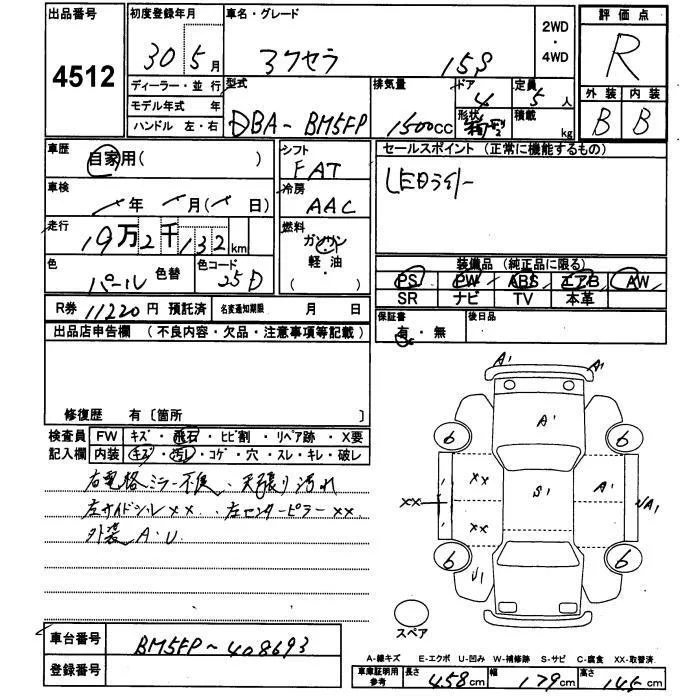 出品番号
4512
初度登録年月
30 5月
車名・グレード
アクセラ 15S
2WD
・
4WD
評価点
R
外装 内装
B B
ディーラー・並行
モデル年式 年
ハンドル 左・右
型式
DBA-BM5FP
排気量
1500cc
ドア
4
形状
定員
5人
積載
kg
車歴
自家用( )
車検
年 月( 日)
走行
19万2千132km
色
パール 色替
色コード
25D
シフト
FAT
冷房
AAC
燃料
ガソリン
軽・油
( )
セールスポイント (正常に機能するもの)
LEDライト
装備品 (純正品に限る)
PS PW ABS エアB AW
SR ナビ TV 本革
保証書
有・無
後日品
R券 11220円 預託済
名変通知期限 月 日
出品店申告欄 (不良内容・欠品・注意事項等記載)
修復歴 有〔箇所 〕
検査員
記入欄
FW キズ・飛石・ヒビ割・リペア跡・X要
内装 キズ・汚レ・コゲ・穴・スレ・キレ・破レ
右電格ミラー不良、天張り汚れ
左サイドシルXX、左センターピラーXX
外装A.U
A1 A1
A1
6 6
XX
XX XX S1 A1 A1
6 6
U1
スペア
車台番号
BM5FP-408693
登録番号
A-線キズ E-エクボ U-凹み W-補修跡 S-サビ C-腐食 XX-取替済
車庫証明用
参考
長さ 458cm 幅 179cm 高さ 146cm